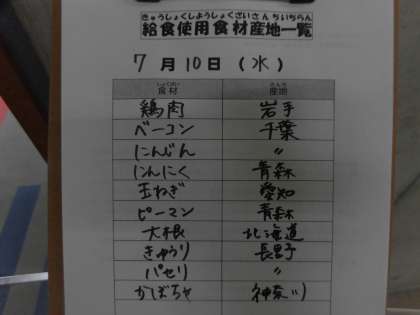 きゅうしょくしようしょくざいさんちいちらん
給食使用食材産地一覧
7月10日(水)
しょくざい さんち
食材 産地
鶏肉 岩手
ベーコン 千葉
にんじん 〃
にんにく 青森
玉ねぎ 愛知
ピーマン 青森
大根 北海道
きゅうり 長野
パセリ 〃
かぼちゃ 神奈川